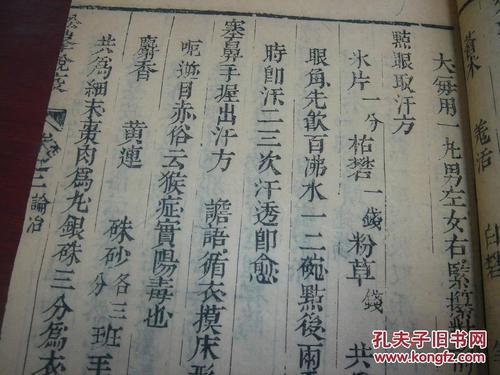 大每用一丸男左女右緊揑
點眼取汗方
氷片一分 枯礬一錢 粉草錢 共
眼角先飲百沸水一二碗點後兩
時即汗二三次汗透即愈
塞鼻手握出汗方 譫語循衣摸床形
呃逆目赤俗云猴症實陽毒也
麝香 黃連 硃砂各三分 班
共為細末棗肉為丸銀硃三分為衣
二論治
孔夫子旧书网
www.kongfz.com